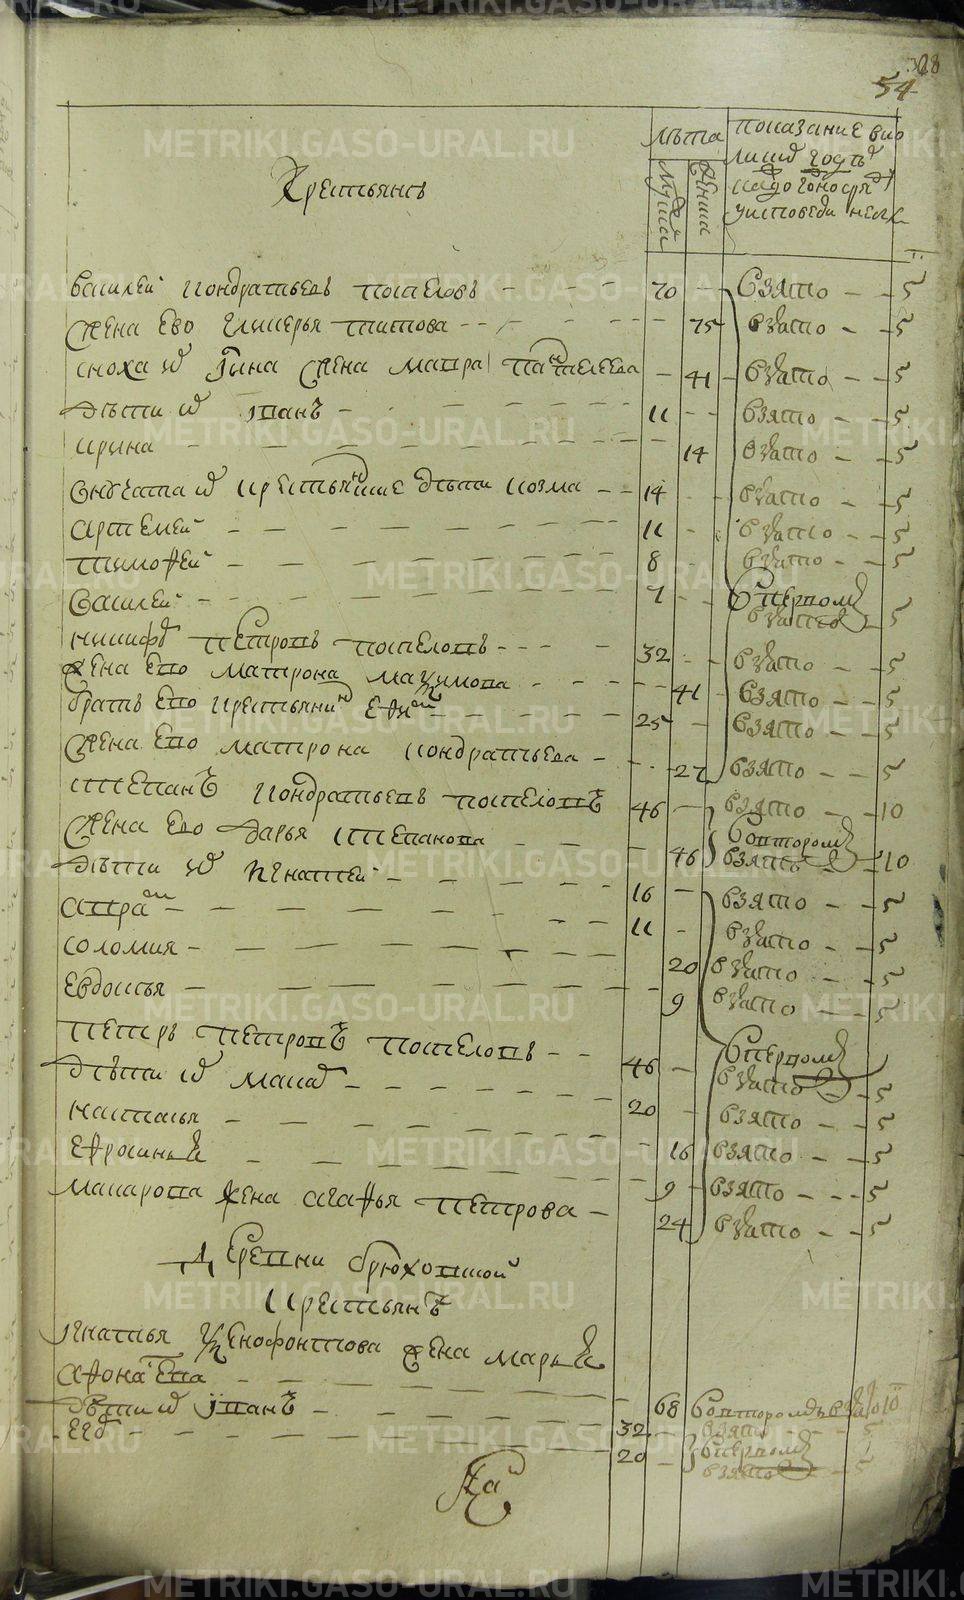 328
54
Крестьянъ
лѣта
мужеска
женска
показание
году
исповеди
василеи кондратьевъ поспеловъ 70 взято 5
жена ево гликерья титова 75 взято 5
сноха их жена мавра пантелеева 41 взято 5
дѣти их іванъ 11 взято 5
ирина 14 взято 5
внучата их крестьянские дѣти козма 14 взято 5
артемеи 11 взято 5
тимофеи 8 взято 5
василеи 7 в первом взято 5
никифоръ петровъ поспеловъ 32 взято 5
жена ево матрона максимова 41 взято 5
братъ ево крестьянинъ 25 взято 5
жена ево матрона кондратьева 27 взято 5
степанъ кондратьевъ поспеловъ 46 взято 10
жена ево дарья степанова 46 во втором взято 10
дѣти их игнатеи 16 взято 5
11 взято 5
соломия 20 взято 5
евдокья 9 взято 5
петръ петровъ поспеловъ 46 в первом взято 5
дѣти их макар 20 взято 5
наталья 16 взято 5
ефросинья 9 взято 5
макарова жена агафья петрова 24 взято 5
Деревни брюховской
крестьянъ
игнатья ксенофонтова жена марья
афонасьева 68 во втором взято 10
дѣти их іванъ 32 взято 5
егор 20 в первом взято 5